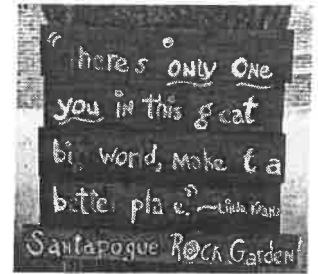 "here's only one
you in this great
big world, make it a
better place." ~Linda Kranz
Santapogue Rock Garden!